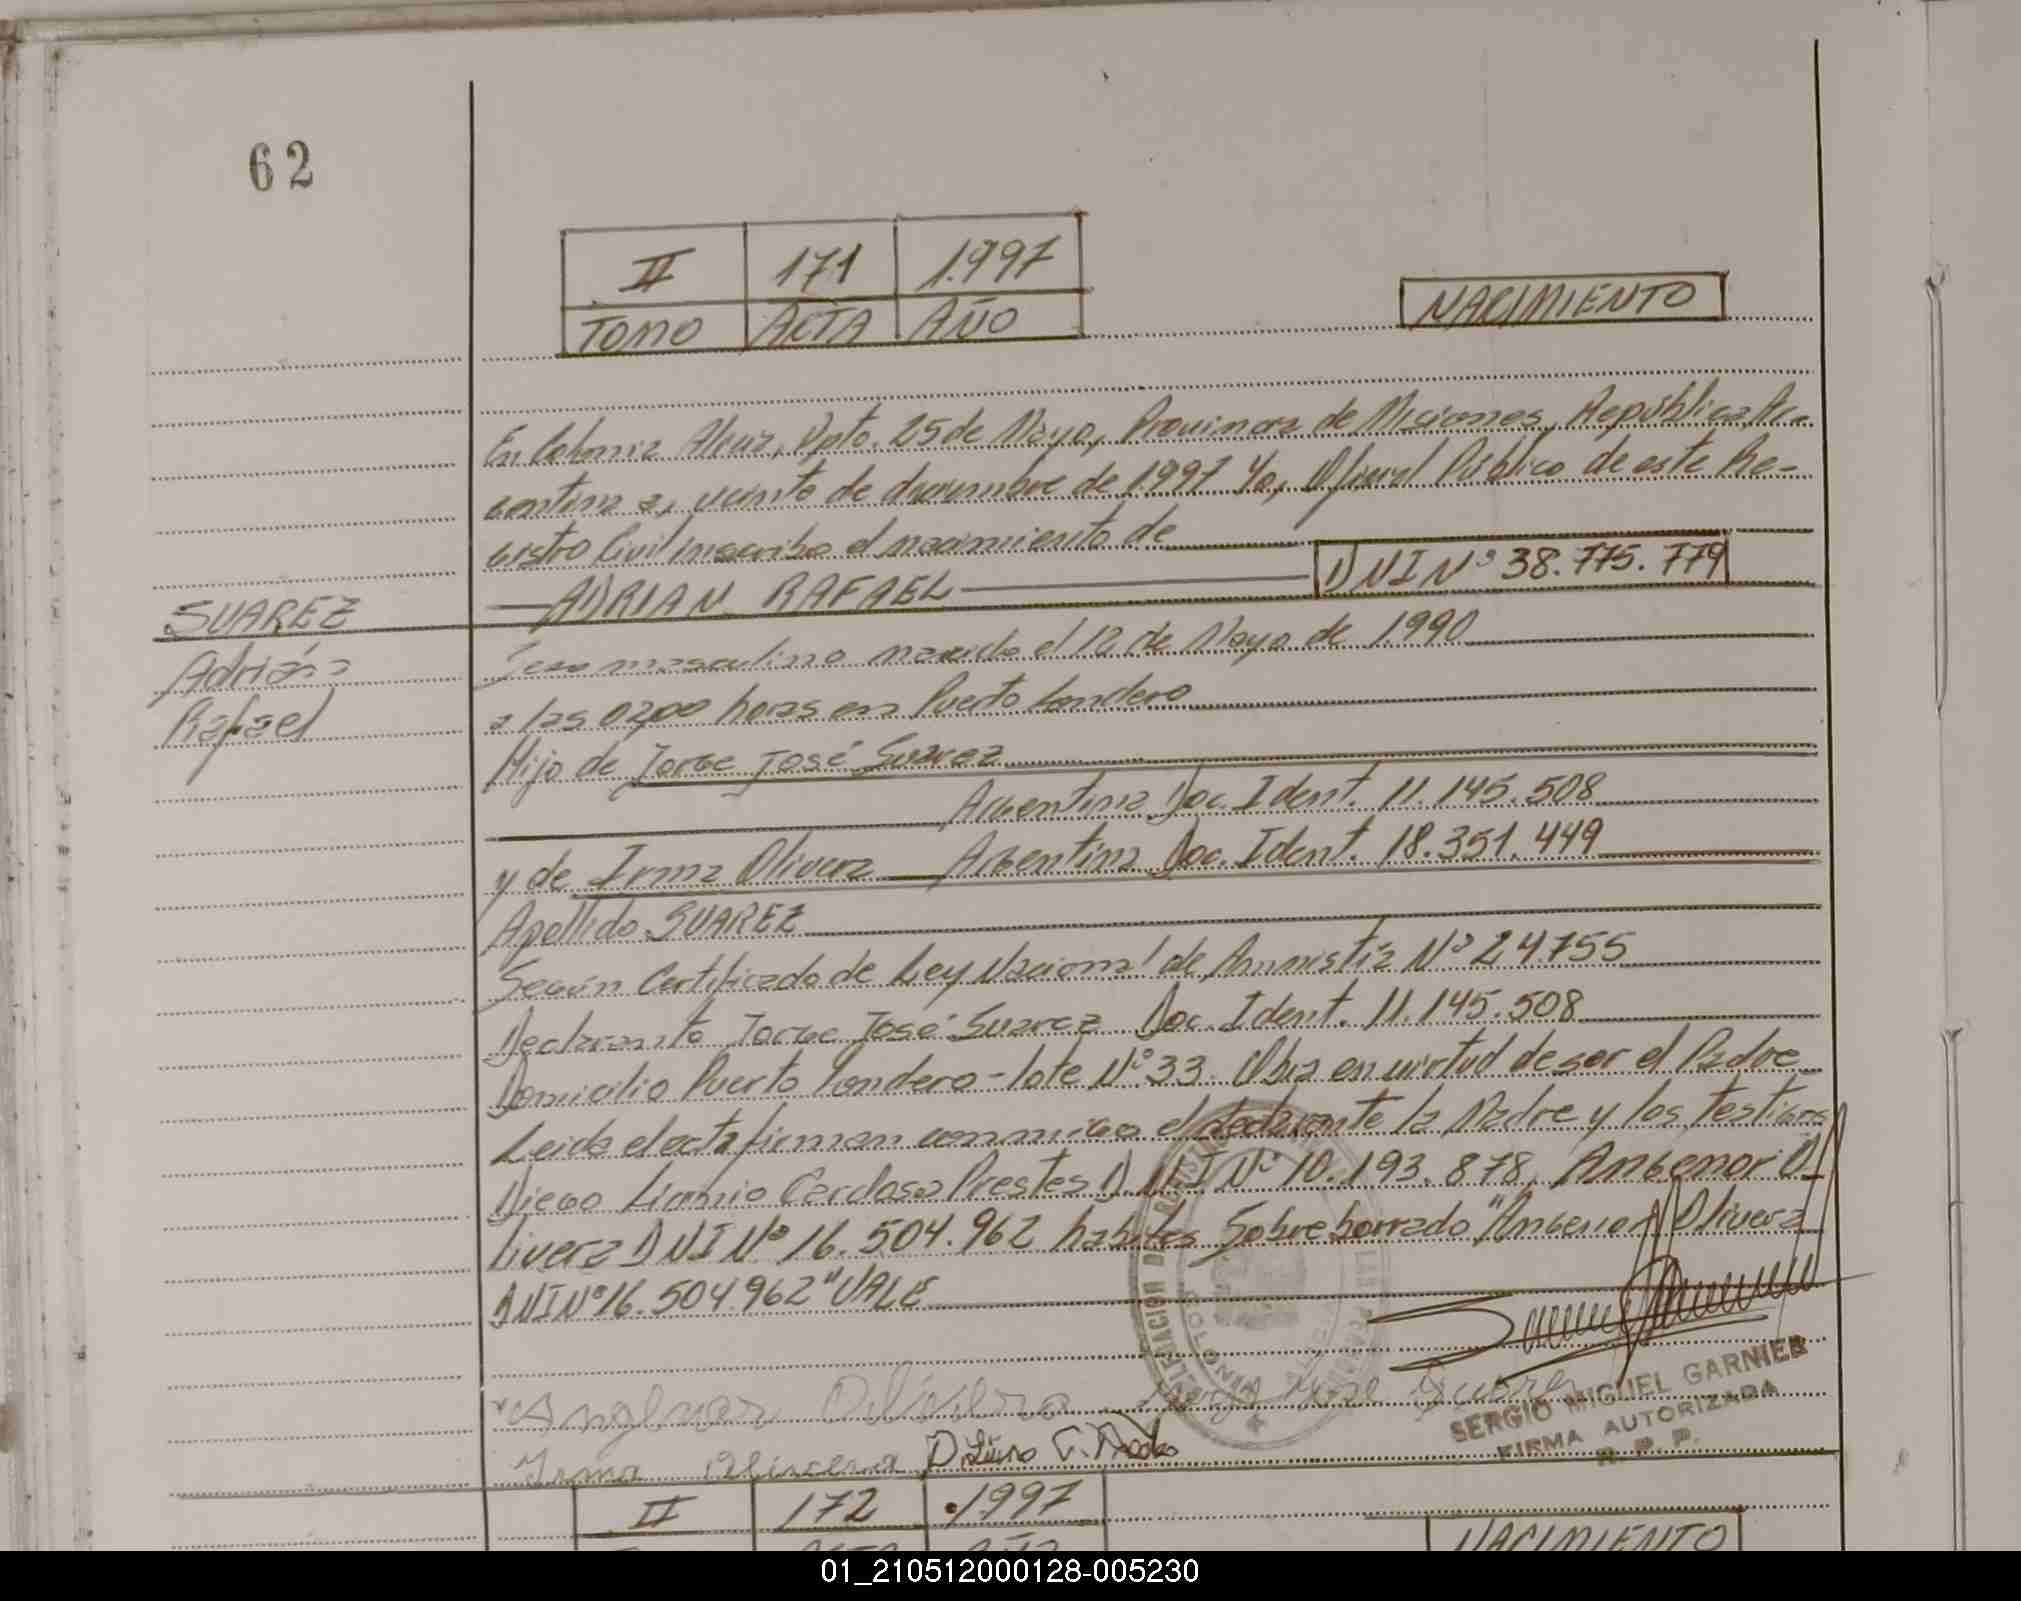 62
II 171 1.997
TOMO ACTA AÑO
NACIMIENTO
En Colonia Alicia, Dpto. 25 de Mayo, Provincia de Misiones, República Ar-
gentina a, veinte de diciembre de 1.997 Yo, Oficial Público de este Re-
gistro Civil inscribo el nacimiento de
ADRIAN RAFAEL DNI Nº 38.775.779
SUAREZ
Adrián
Rafael
Sexo masculino nacido el 12 de Mayo de 1.990
a las 02,00 horas en Puerto Londero
Hijo de Jorge José Suarez
Argentina Doc. Ident. 11.145.508
y de Irma Olivera Argentina Doc. Ident. 18.351.449
Apellido SUAREZ
Según Certificado de Ley Nacional de Amnistía Nº 24.755
Declarante Jorge José Suarez Doc. Ident. 11.145.508
Domicilio Puerto Londero - lote Nº 33. Obra en virtud de ser el Padre
Leida el acta firman conmigo el declarante la Madre y los testigos
Diego Lirio Cardoso Prestes D.N.I Nº 10.193.878, Angenor O-
livera DNI Nº 16.504.962 habiles Sobreborrado "Angenor Olivera
DNI Nº 16.504.962" VALE
Olivera Jorge José Suarez
SERGIO MIGUEL GARNIER
FIRMA AUTORIZADA
R. P. P.
Irma
II 172 1997
ACTA AÑO
NACIMIENTO
01_210512000128-005230